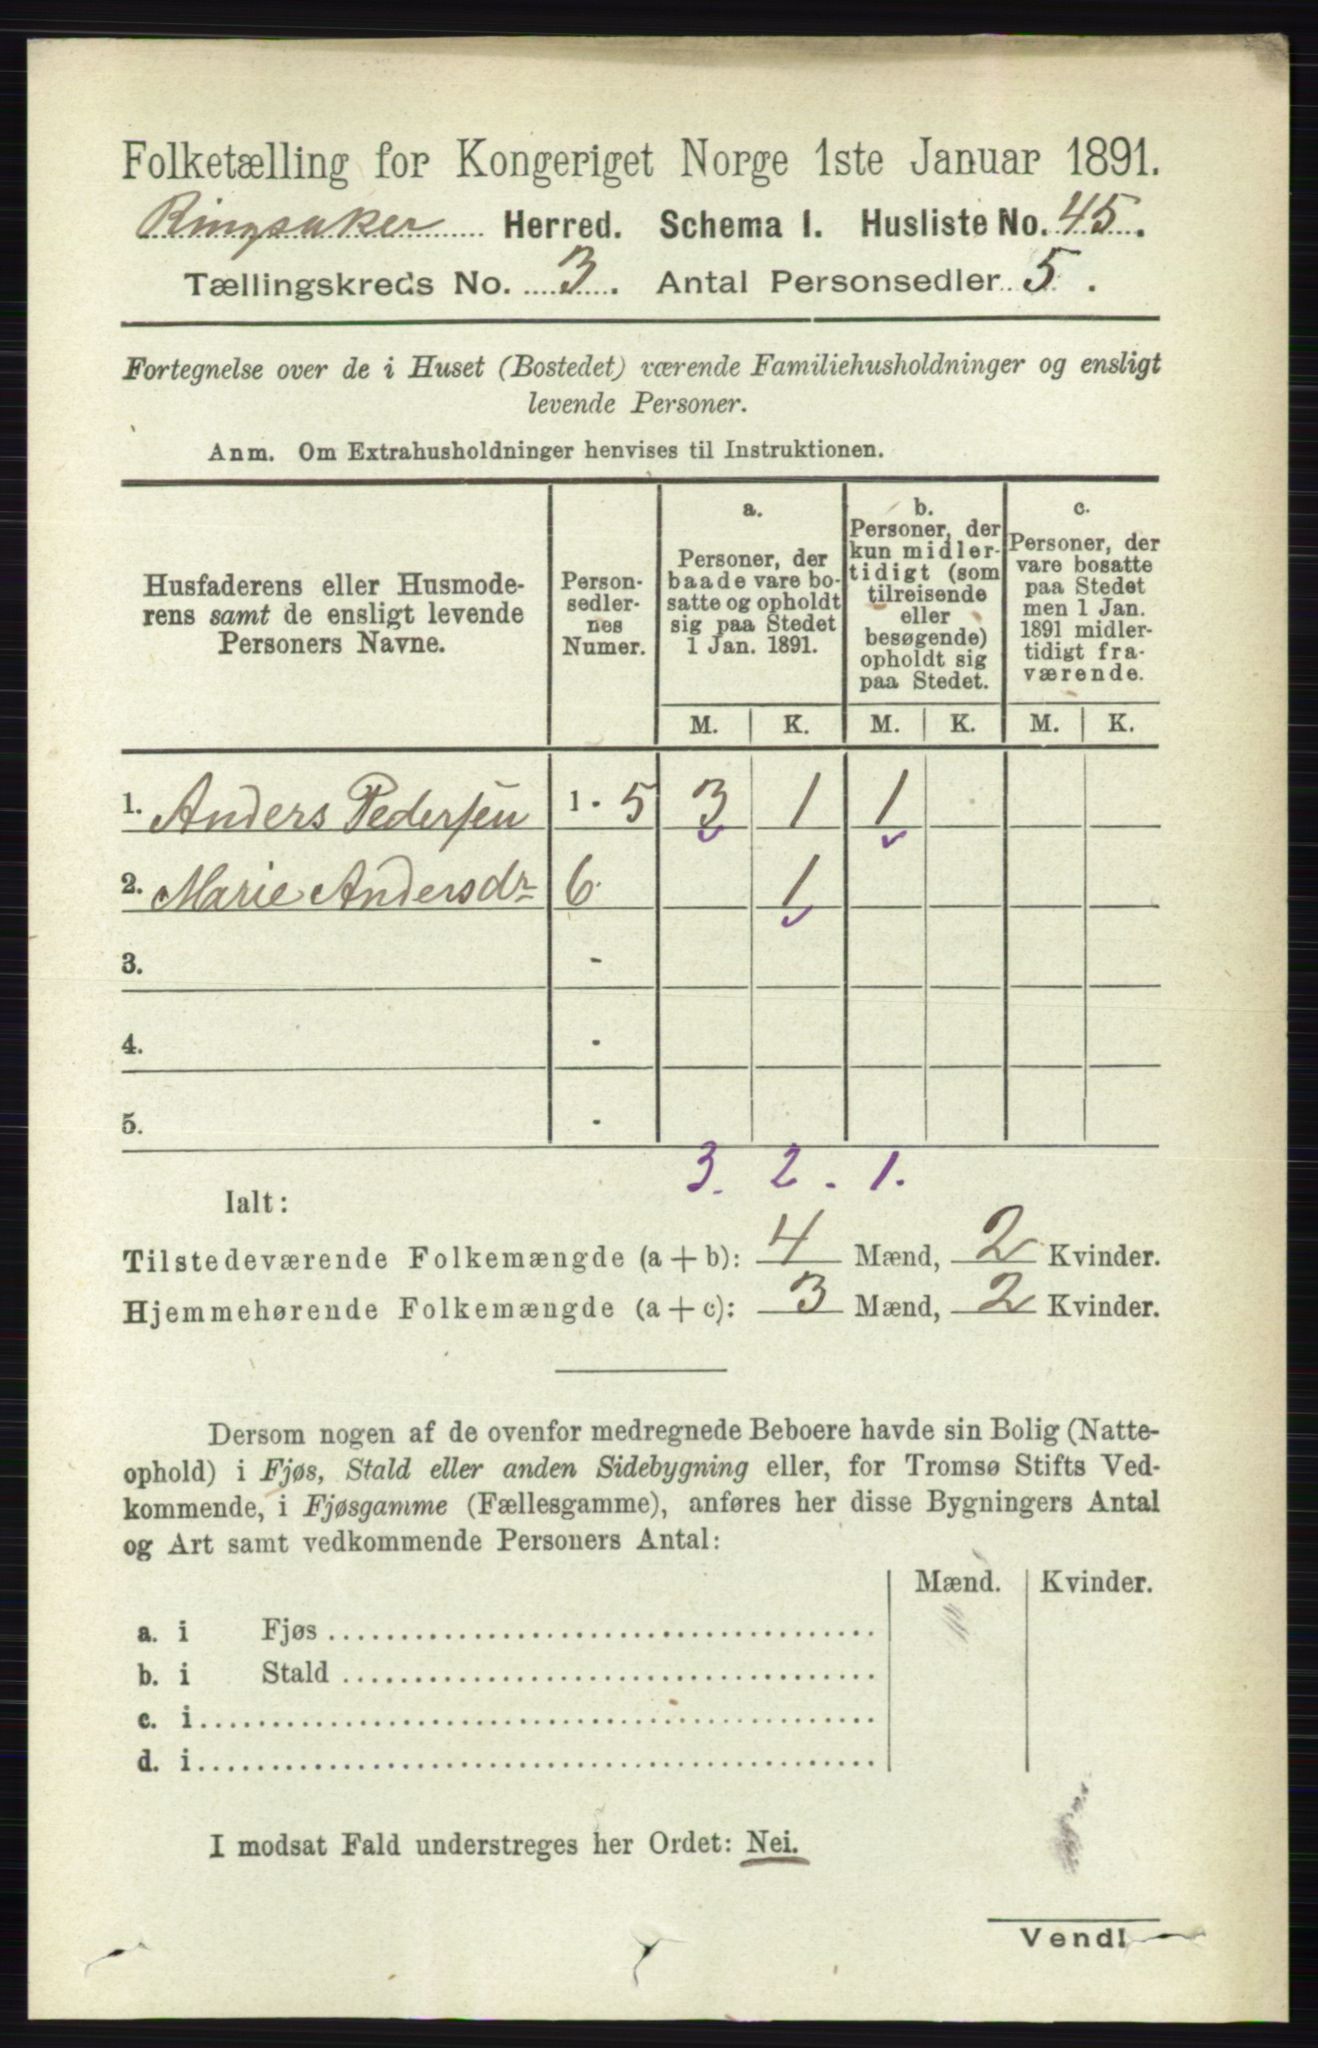 Folketælling for Kongeriget Norge 1ste Januar 1891.
Ringsaker Herred. Schema I. Husliste No. 45.
Tællingskreds No. 3. Antal Personsedler 5.
Fortegnelse over de i Huset (Bostedet) værende Familiehusholdninger og ensligt
levende Personer.
Anm. Om Extrahusholdninger henvises til Instruktionen.
Husfaderens eller Husmode-
rens samt de ensligt levende
Personers Navne.
Person-
sedler-
nes
Numer.
a.
Personer, der
baade vare bo-
satte og opholdt
sig paa Stedet
1 Jan. 1891.
b.
Personer, der
kun midler-
tidigt (som
tilreisende
eller
besøgende)
opholdt sig
paa Stedet.
c.
Personer, der
vare bosatte
paa Stedet
men 1 Jan.
1891 midler-
tidigt fra-
værende.
M. K. M. K. M. K.
1. Anders Pedersen 1 - 5 3 1 1
2. Marie Andersdr 6 1
3. -
4. -
5. -
3. 2. 1.
Ialt:
Tilstedeværende Folkemængde (a + b): 4 Mænd, 2 Kvinder.
Hjemmehørende Folkemængde (a + c): 3 Mænd, 2 Kvinder.
Dersom nogen af de ovenfor medregnede Beboere havde sin Bolig (Natte-
ophold) i Fjøs, Stald eller anden Sidebygning eller, for Tromsø Stifts Ved-
kommende, i Fjøsgamme (Fællesgamme), anføres her disse Bygningers Antal
og Art samt vedkommende Personers Antal:
Mænd. Kvinder.
a. i Fjøs
b. i Stald
c. i
d. i
I modsat Fald understreges her Ordet: Nei.
Vend!